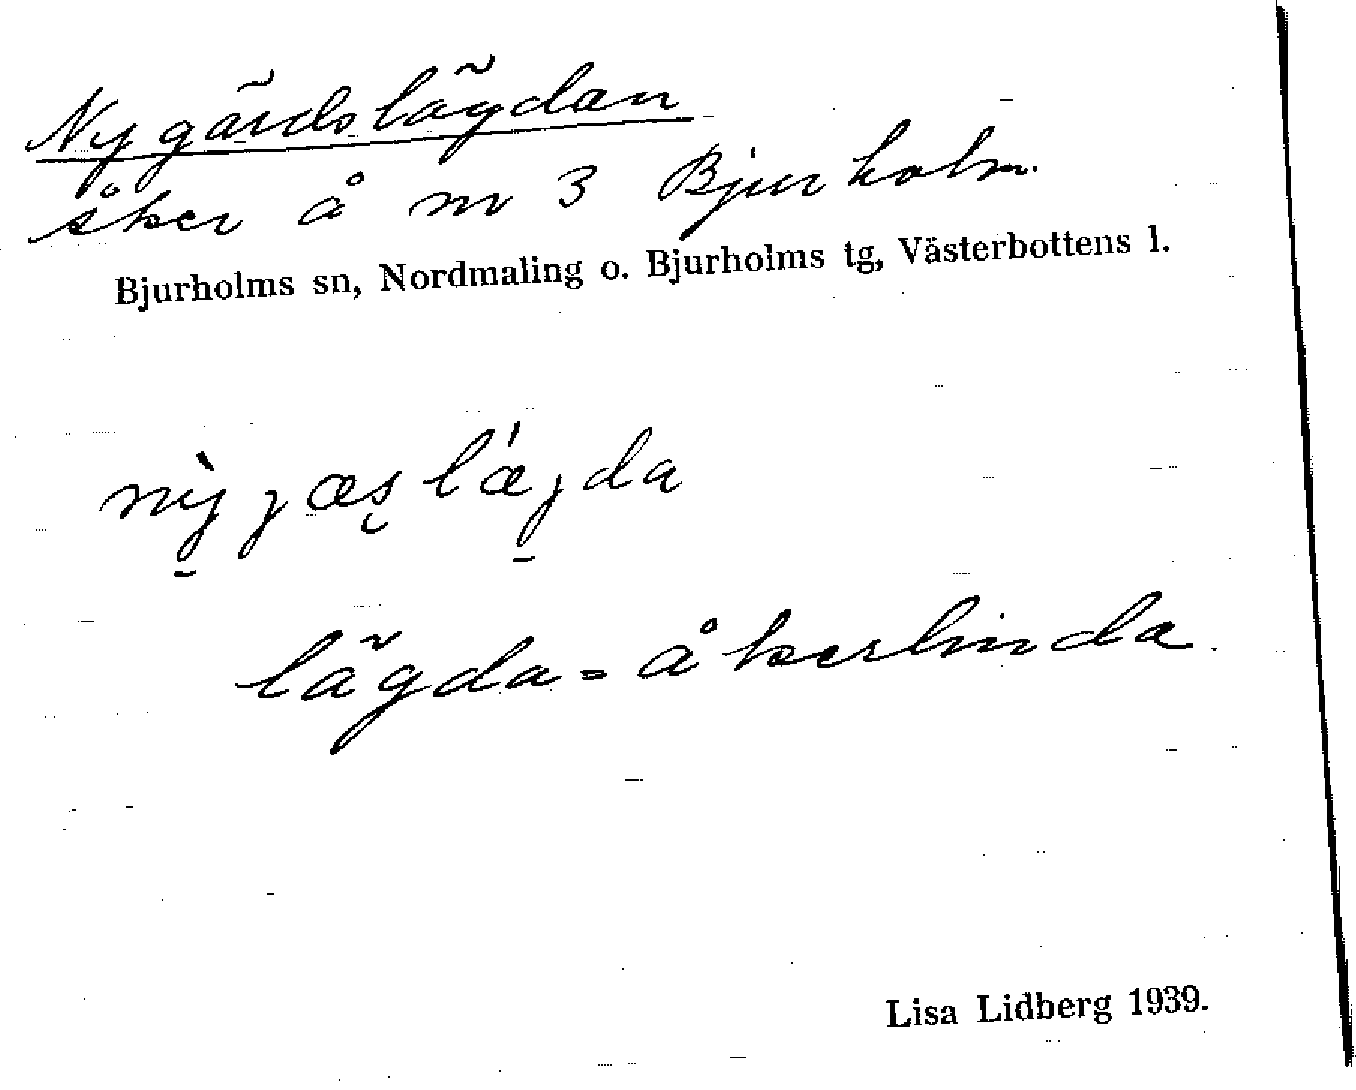 Nygärdslägdan
åker å nr 3 Bjurholm.
Bjurholms sn, Nordmaling o. Bjurholms tg, Västerbottens l.
lägda = åkerlinda.
Lisa Lidberg 1939.